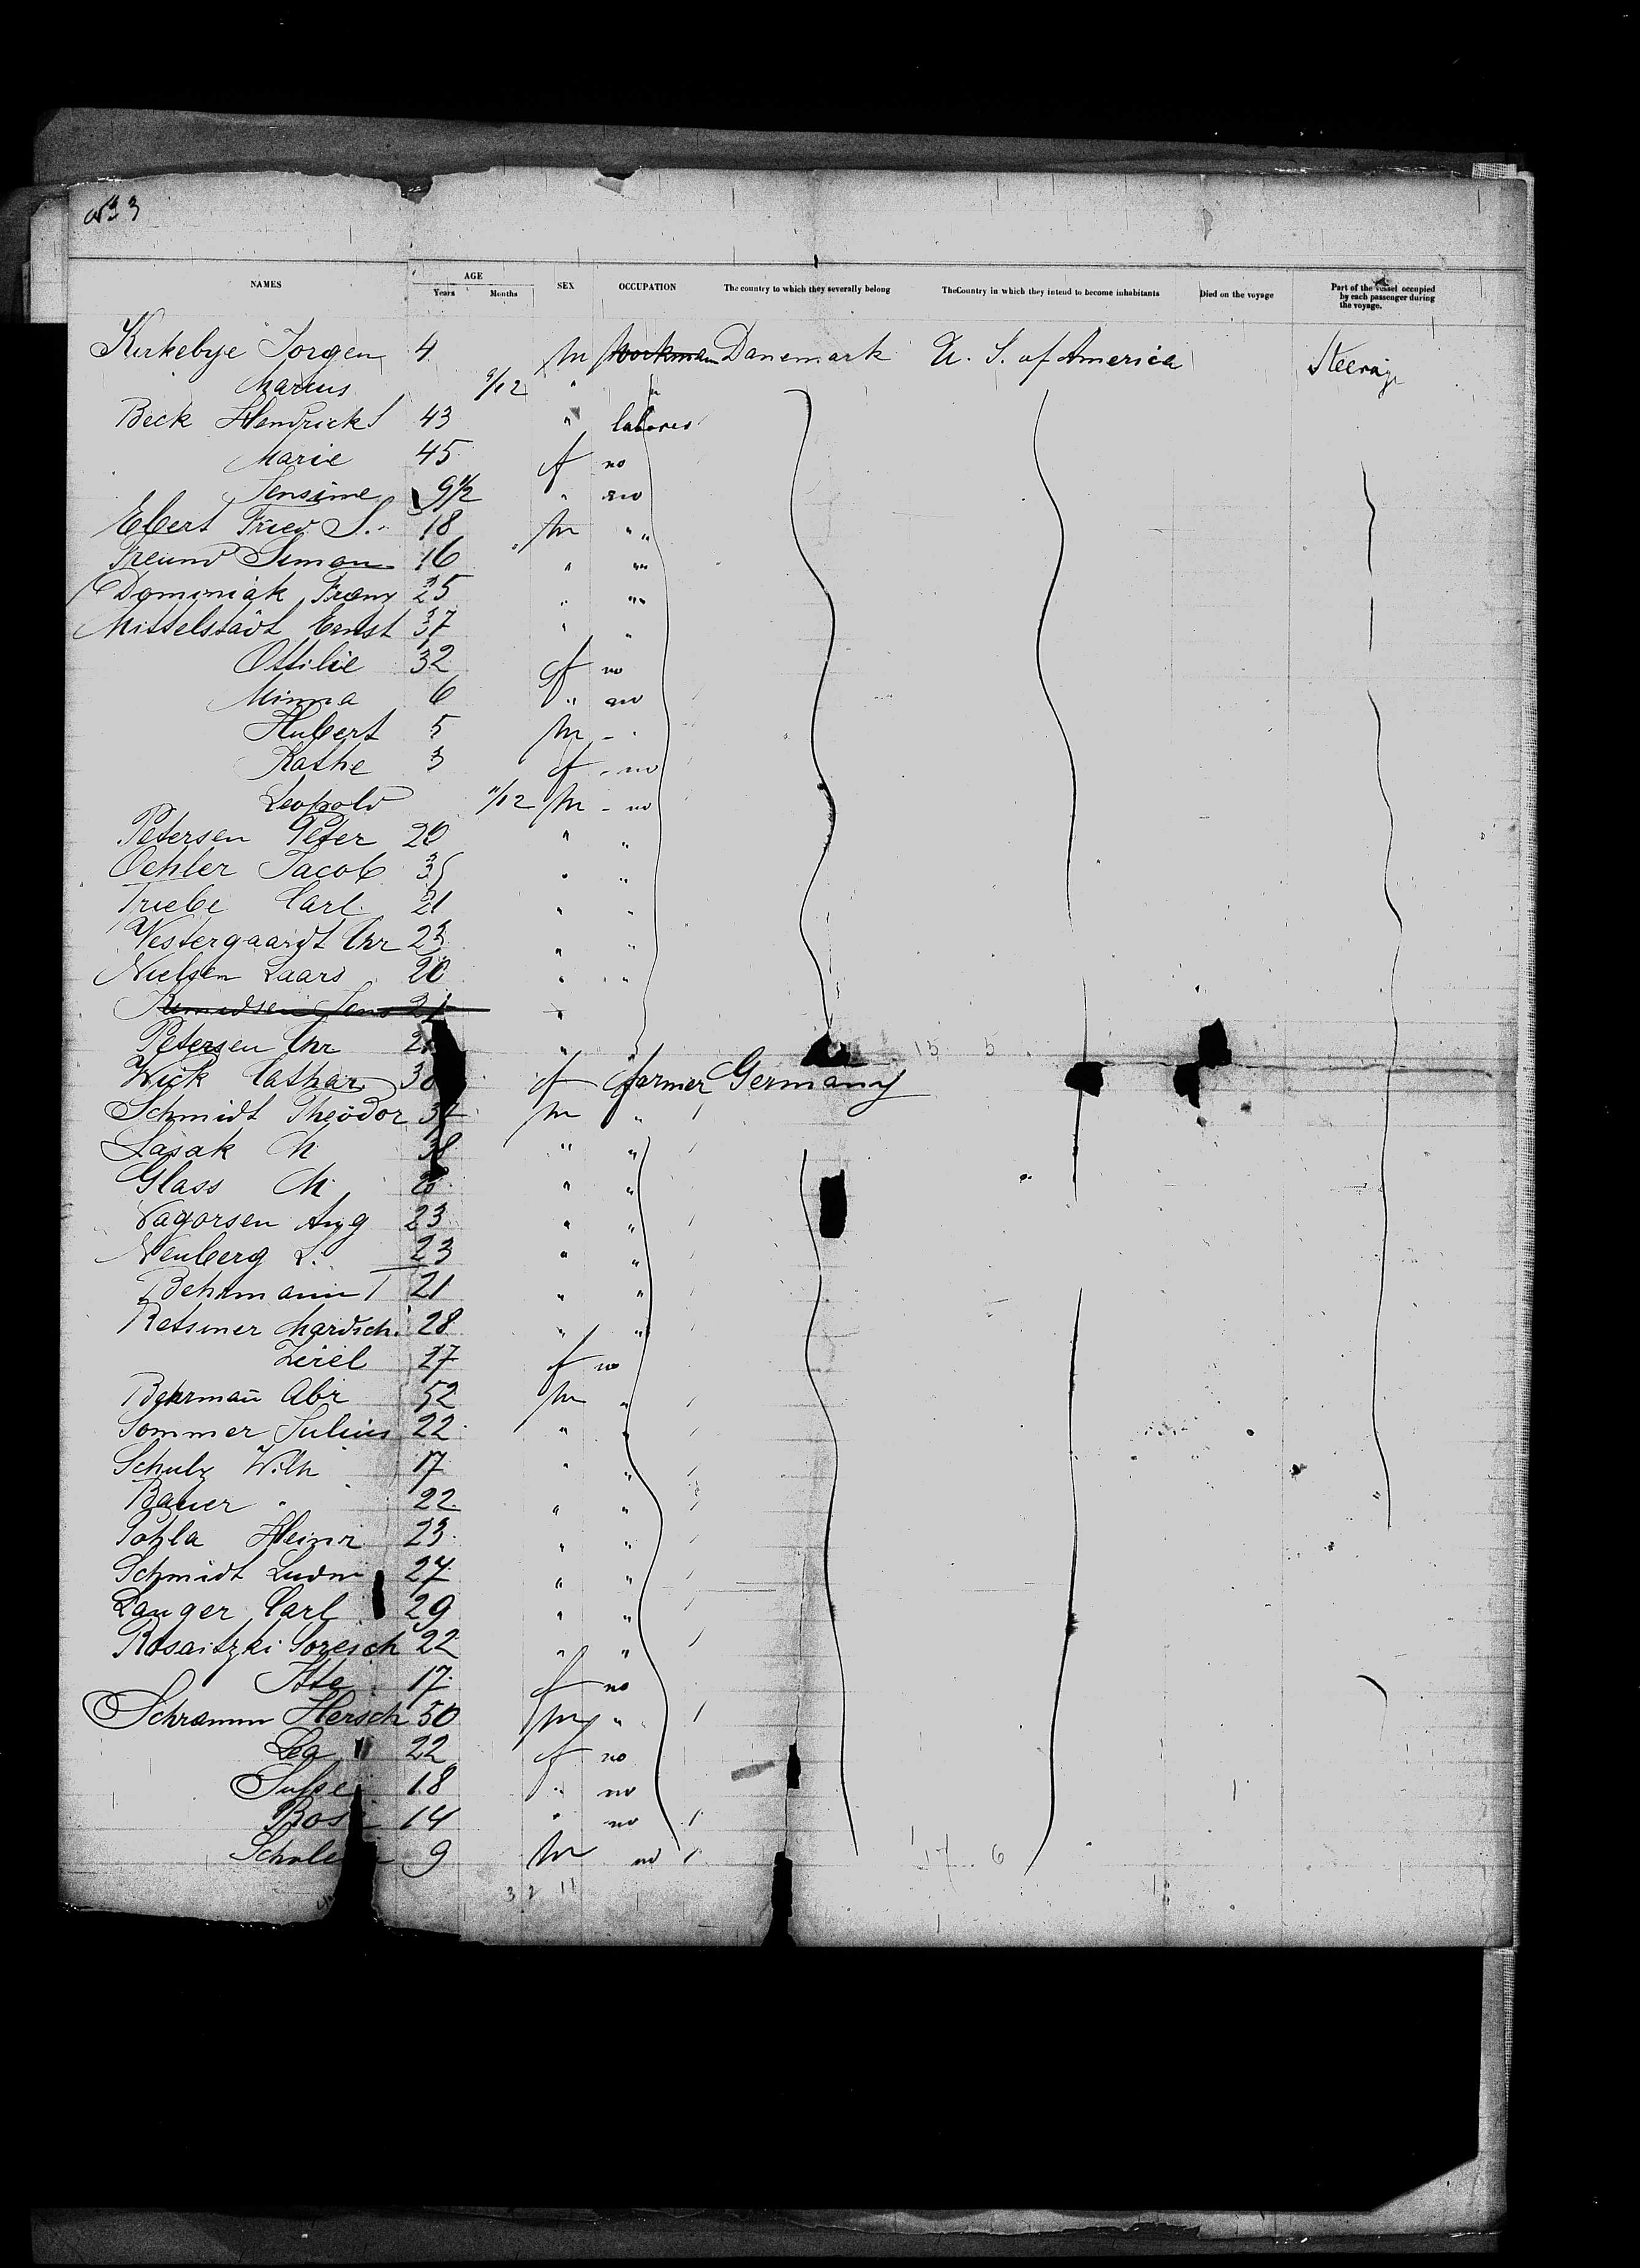 NAMES AGE Years Months SEX OCCUPATION The country to which they severally belong The Country in which they intend to become inhabitants Died on the voyage Part of the vessel occupied by each passenger during the voyage.
Kirkebye Jorgen 4 m Workman Danemark U. S. of America Steerage
Marius 9/12 " "
Beck Hendrick 43 " labores
Marie 45 f no
Jensine 9 1/2 " no
Ebert Fried S. 18 m " "
Freund Simon 16 " " "
Dominiak Franz 25 " " "
Mittelstädt Ernst 37 " "
Ottilie 32 f no
Minna 6 " no
Hubert 5 m - "
Kathe 3 f - no
Leopold 11/12 m - no
Petersen Peter 20 " "
Oehler Jacob 35 " "
Triebe Carl 21 " "
Vestergaardt Chr 23 " "
Nielsen Laars 20 " "
Jens 21 "
Petersen Chr "
Wick Cathar 30 f farmer Germany
Schmidt Theodor m "
Lasak M 38 " "
Glass M " "
Vagorsen Aug 23 " "
Neuberg L. 23 " "
Behrmann T 21 " "
Retsmer Mardsch. 28 " "
Zeiel 27 f no
Behrman̄ Abr 52 m "
Sommer Julius 22 " "
Schulz Wilh 17 " "
Bauer " 22 " "
Heinr 23 " "
Schmidt Ludw 27 " "
Langer Carl 29 " "
Rosaitzki Soresch 22 " "
Itte 17 f no
Schramm Hersch 50 m "
Lea 22 f no
18 " no
14 " no
9 m no
32 11